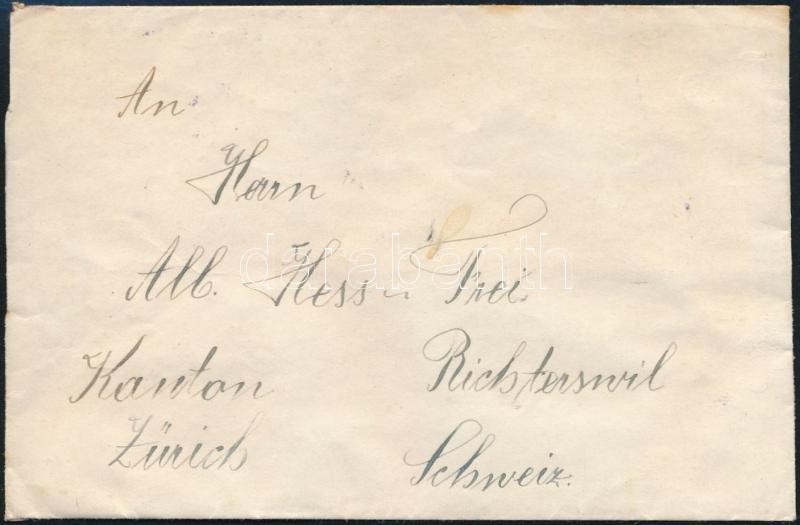 An
Herrn
Alb. Hess - Frei.
Kanton Richterswil
Zürich Schweiz.
darabanth